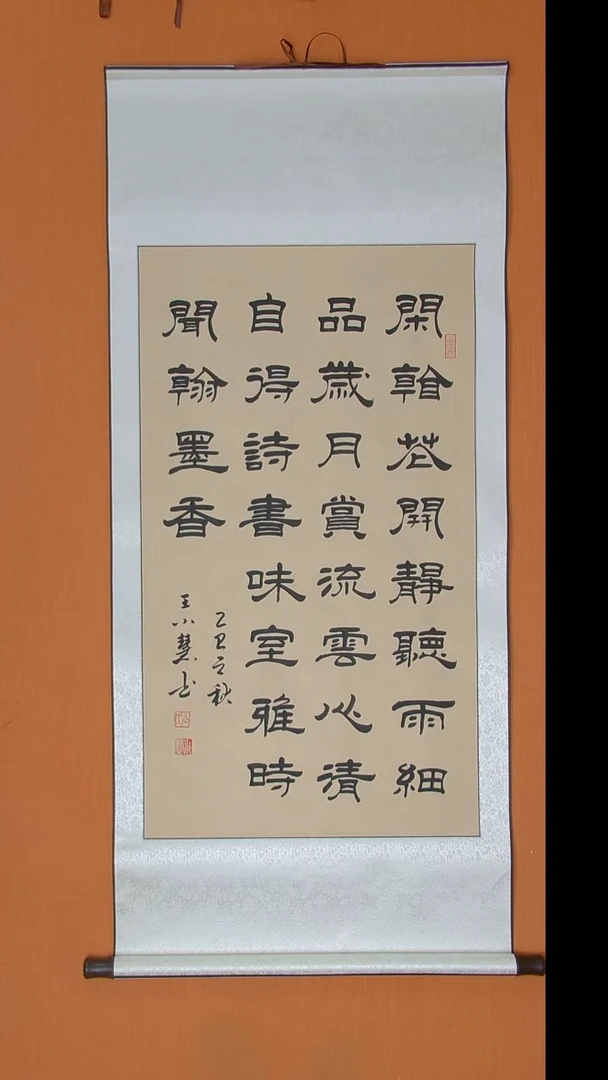 閑看花開靜聽雨細
品歲月賞流雲心清
自得詩書味室雅時
聞翰墨香
之秋
王小慧书